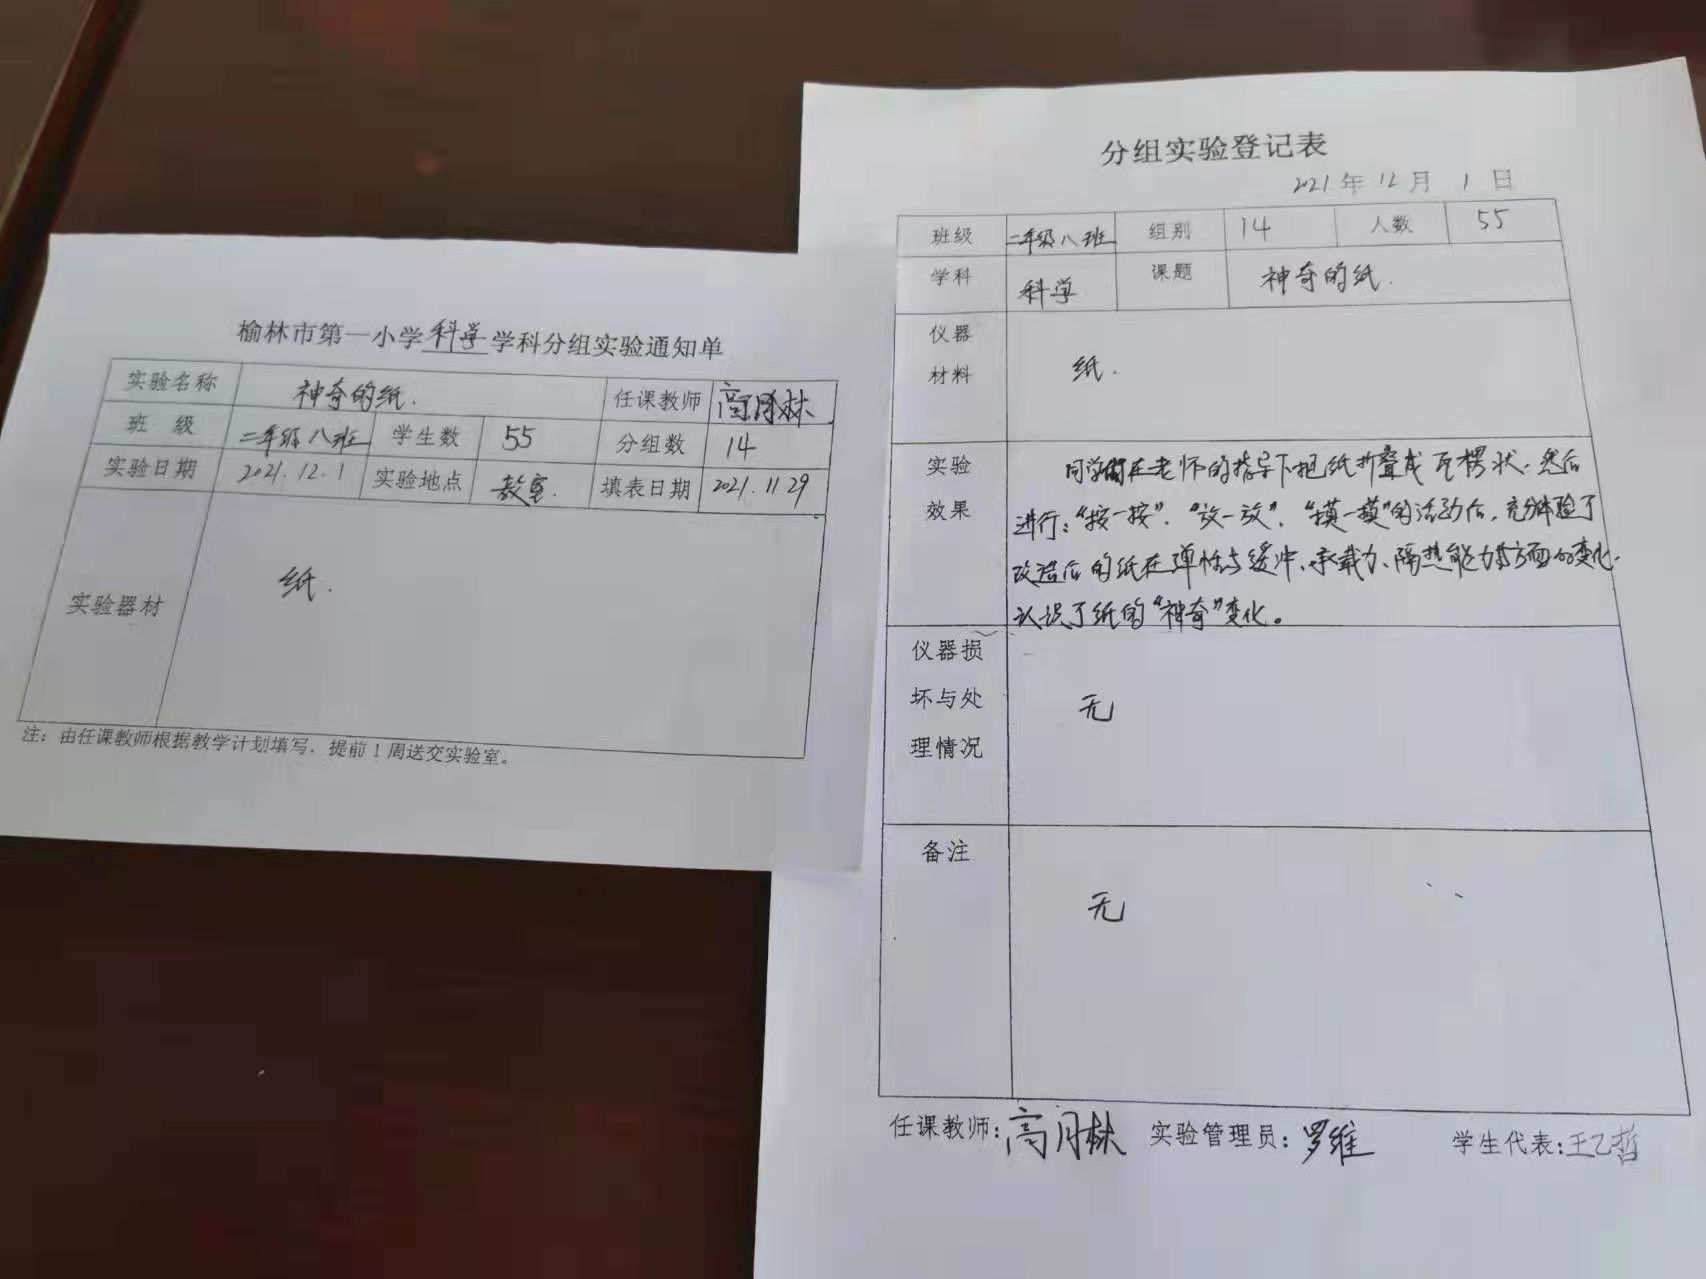 榆林市第一小学科学学科分组实验通知单
实验名称 神奇的纸. 任课教师 高月林
班 级 二年级八班 学生数 55 分组数 14
实验日期 2021.12.1 实验地点 教室. 填表日期 2021.11.29
实验器材 纸.
注：由任课教师根据教学计划填写，提前1周送交实验室。
分组实验登记表
2021年12月1日
班级 二年级八班 组别 14 人数 55
学科 科学 课题 神奇的纸.
仪器
材料
纸.
实验
效果
同学们在老师的指导下把纸折叠成瓦楞状.然后
进行:“按一按”、“放一放”、“摸一摸”的活动后,充分体验了
改造后的纸在弹性与缓冲、承载力、隔热能力等方面的变化.
认识了纸的“神奇”变化。
仪器损
坏与处
理情况
无
备注
无
任课教师:高月林 实验管理员:罗维 学生代表:王乙哲